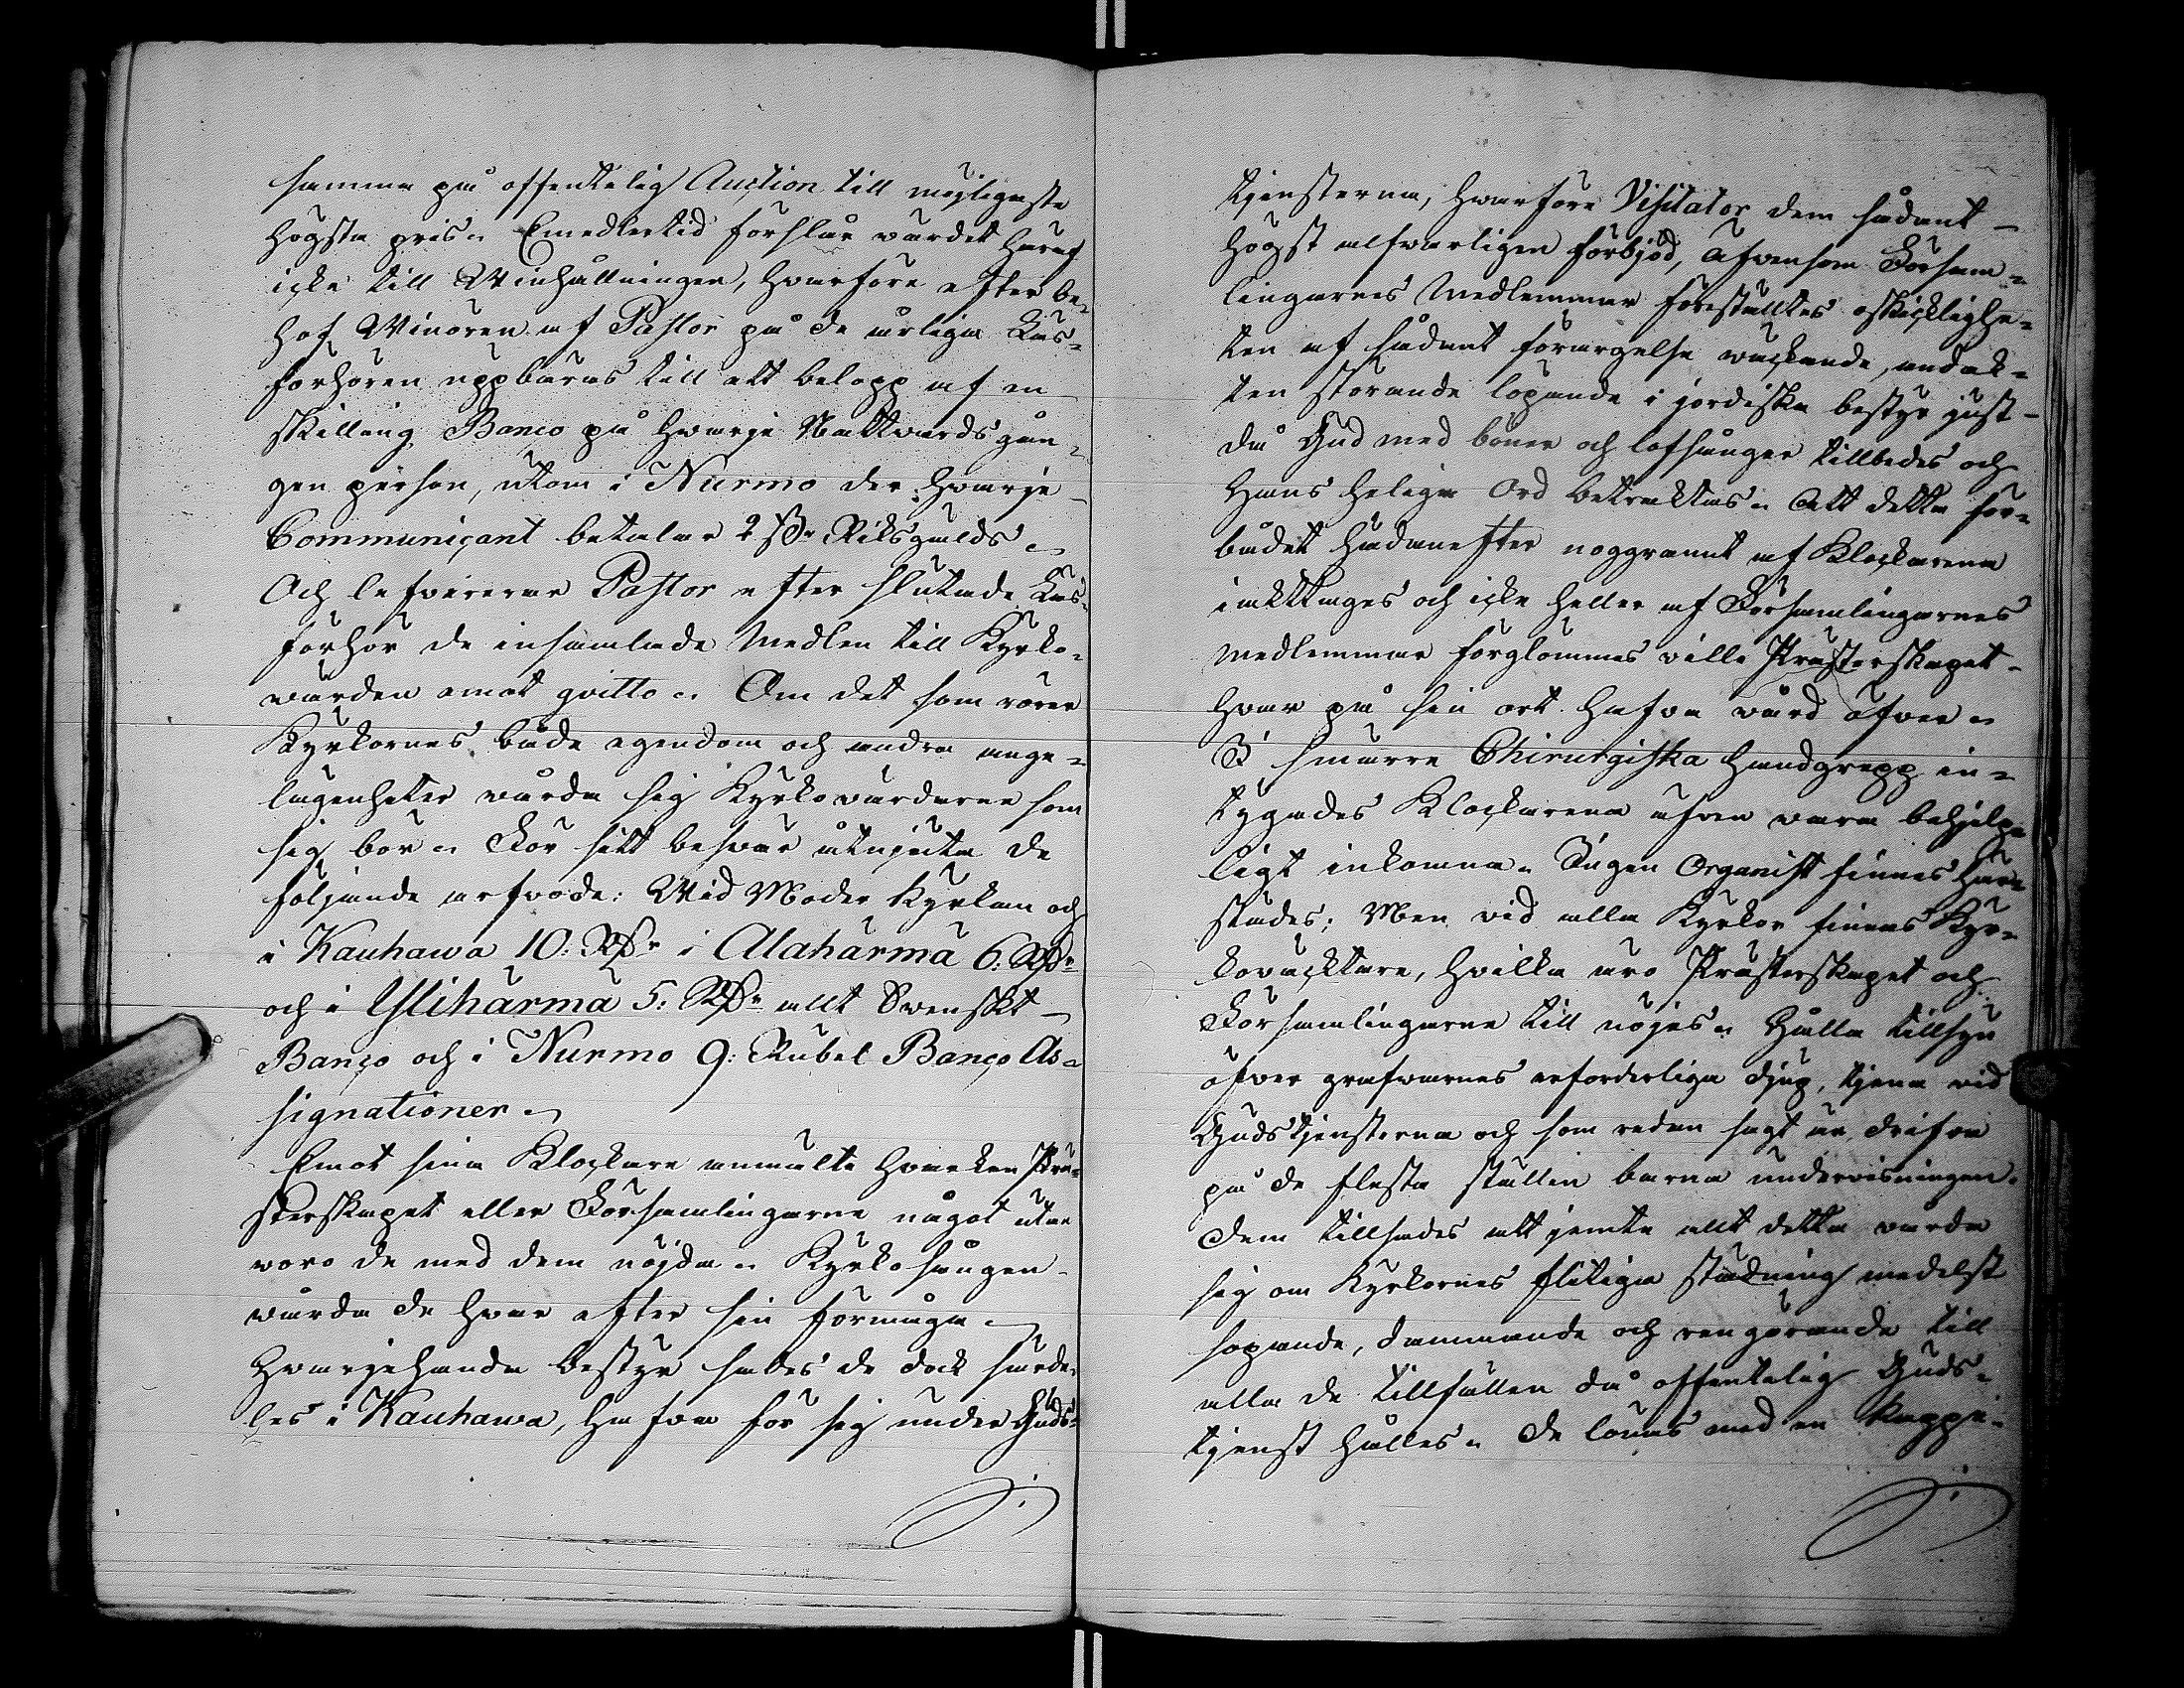 samma på offentelig Auction till möjligaste
högsta pris. Emedlertid förslår wärdet häraf
icke till Winhållningen, hvarföre efter be-
hof Winören af Pastor på de årliga Läs-
förhören uppbäras till ett belopp af en
skilling Banco på hvarje Nattvards gån-
gen person, utom i Nurmo der hvarje
Communicant betalar 2 sk. Riksgälds.
Och lefvererar Pastor efter slutade Läs-
förhör de insamlade Medlen till Kyrko-
wärden emot qvitto. Om det som rörer
Kyrkornes både egendom och andra ange-
lägenheter wårda sig Kyrkovärdarne som
sig bör. För sitt besvär åtnjuta de
följande arfvode: Wid Moder Kyrkan och
i Kauhawa 10: Rdr i Alahärmä 6: Rdr
och i Ylihärmä 5: Rdr allt Svenskt
Banco och i Nurmo 9: Rubel Banco As-
signationer.
Emot sina Klockare anmälte hvarken Prä-
sterskapet eller Församlingarne något utan
voro de med dem nöjda. Kyrkosången
wårda de hvar efter sin förmåga.
Hvarjehanda bestyr sades de dock särde-
les i Kauhawa, hafva för sig under Guds-
tjensterna, hvarföre Visitator dem sådant
högst alfvarligen förbjöd, äfvensom Försam-
lingarnes Medlemmar föreställtes oskickelighe-
ten af sådant förargelse wäckande, andak-
ten störande löpande i jordiska bestyr just
då Gud med böner och lofsånger tillbedes och
Hans heliga Ord betraktas. Att detta för-
budet hädanefter noggrannt af Klockarena
iakttages och icke heller af Församlingarnes
medlemmar förglömmes ville Prästerskapet
hvar på sin ort hafva vård öfver.
I smärre Chirurgiska handgrepp in-
tygades Klockarena äfven vara behjelp-
ligt inkomna. Ingen Organist finnes här-
städes; Men vid alla Kyrkor finnas Kyr-
koväcktare, hvilka äro Prästerskapet och
Församlingarne till nöjes. Hålla tillsyn
öfver grafvarnes erforderliga djup, tjena vid
Gudstjensterna och som redan sagt är drifva
på de flesta ställen barna undervisningen.
Dem tillsades att jemte allt detta vårda
sig om Kyrkornes flitiga städning medelst
sopande, dammande och rengörande till
alla de tillfällen då offentelig Guds-
tjenst hålles. De lönas med en kappe